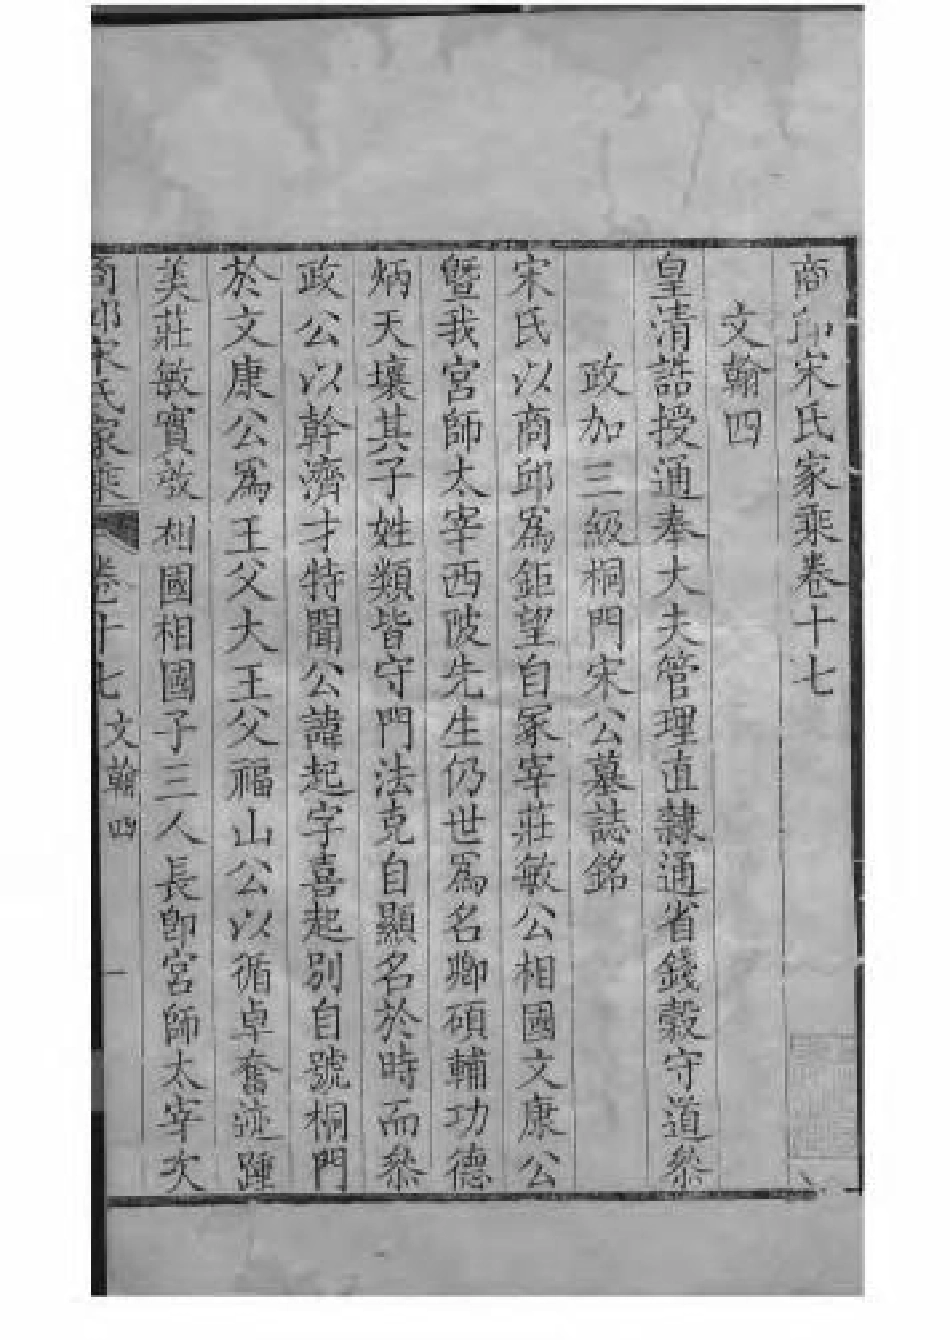 商邱宋氏家乘卷十七
文翰四
皇清誥授通奉大夫管理直隸通省錢穀守道叅
政加三級桐門宋公墓誌銘
宋氏以商邱爲鉅望自冢宰莊敏公相國文康公
曁我宮師太宰西陂先生仍世爲名卿碩輔功德
炳天壤其子姓類皆守門法克自顯名於時而叅
政公以幹濟才特聞公諱起字喜起別自號桐門
於文康公爲王父大王父福山公以循卓奮迹踵
美莊敏實敎相國相國子三人長卽宮師太宰次
商邱宋氏家乘 卷十七 文翰四 一